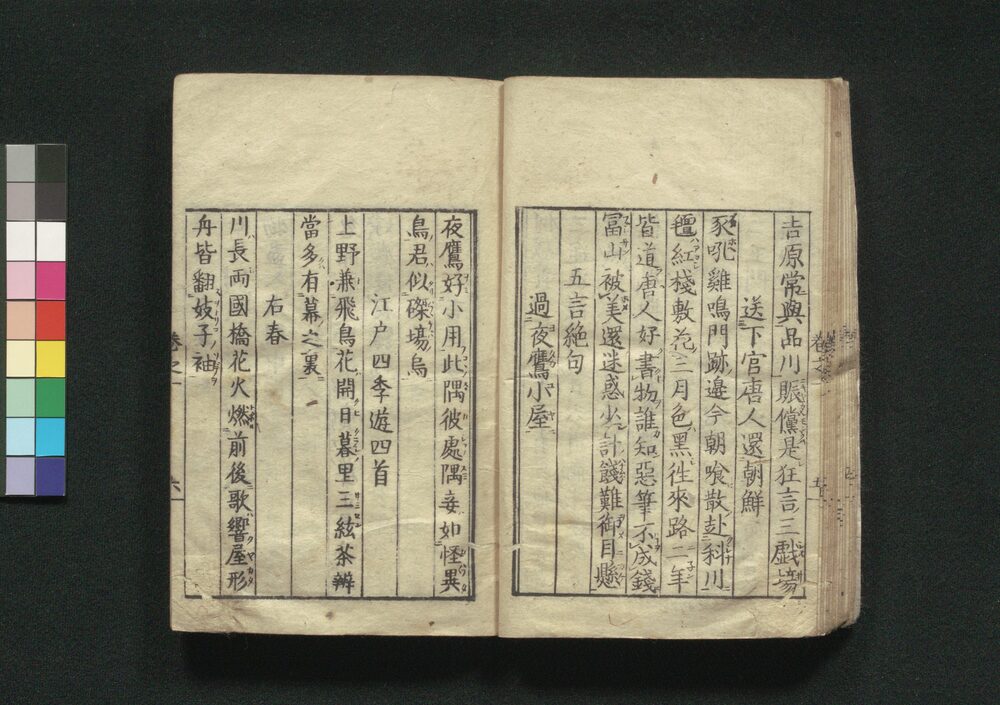 吉原常與品川賑儻是狂言三戯場
送下官唐人還朝鮮
豕吼雞鳴門跡邊今朝喰散赴科川
氊紅棧敷花三月色黑徃來路二年
皆道唐人好書物誰知惡筆不成錢
冨山被美還迷惑少計餞難御目懸
五言絶句
過夜鷹小屋
夜鷹好小用此隅彼處隅妾如怪異
鳥君似磔塲烏
江户四季遊四首
上野兼飛鳥花開日暮里三絃茶辨
當多有幕之裏
右春
川長両國橋花火燃前後歌響屋形
舟皆翻妓子袖